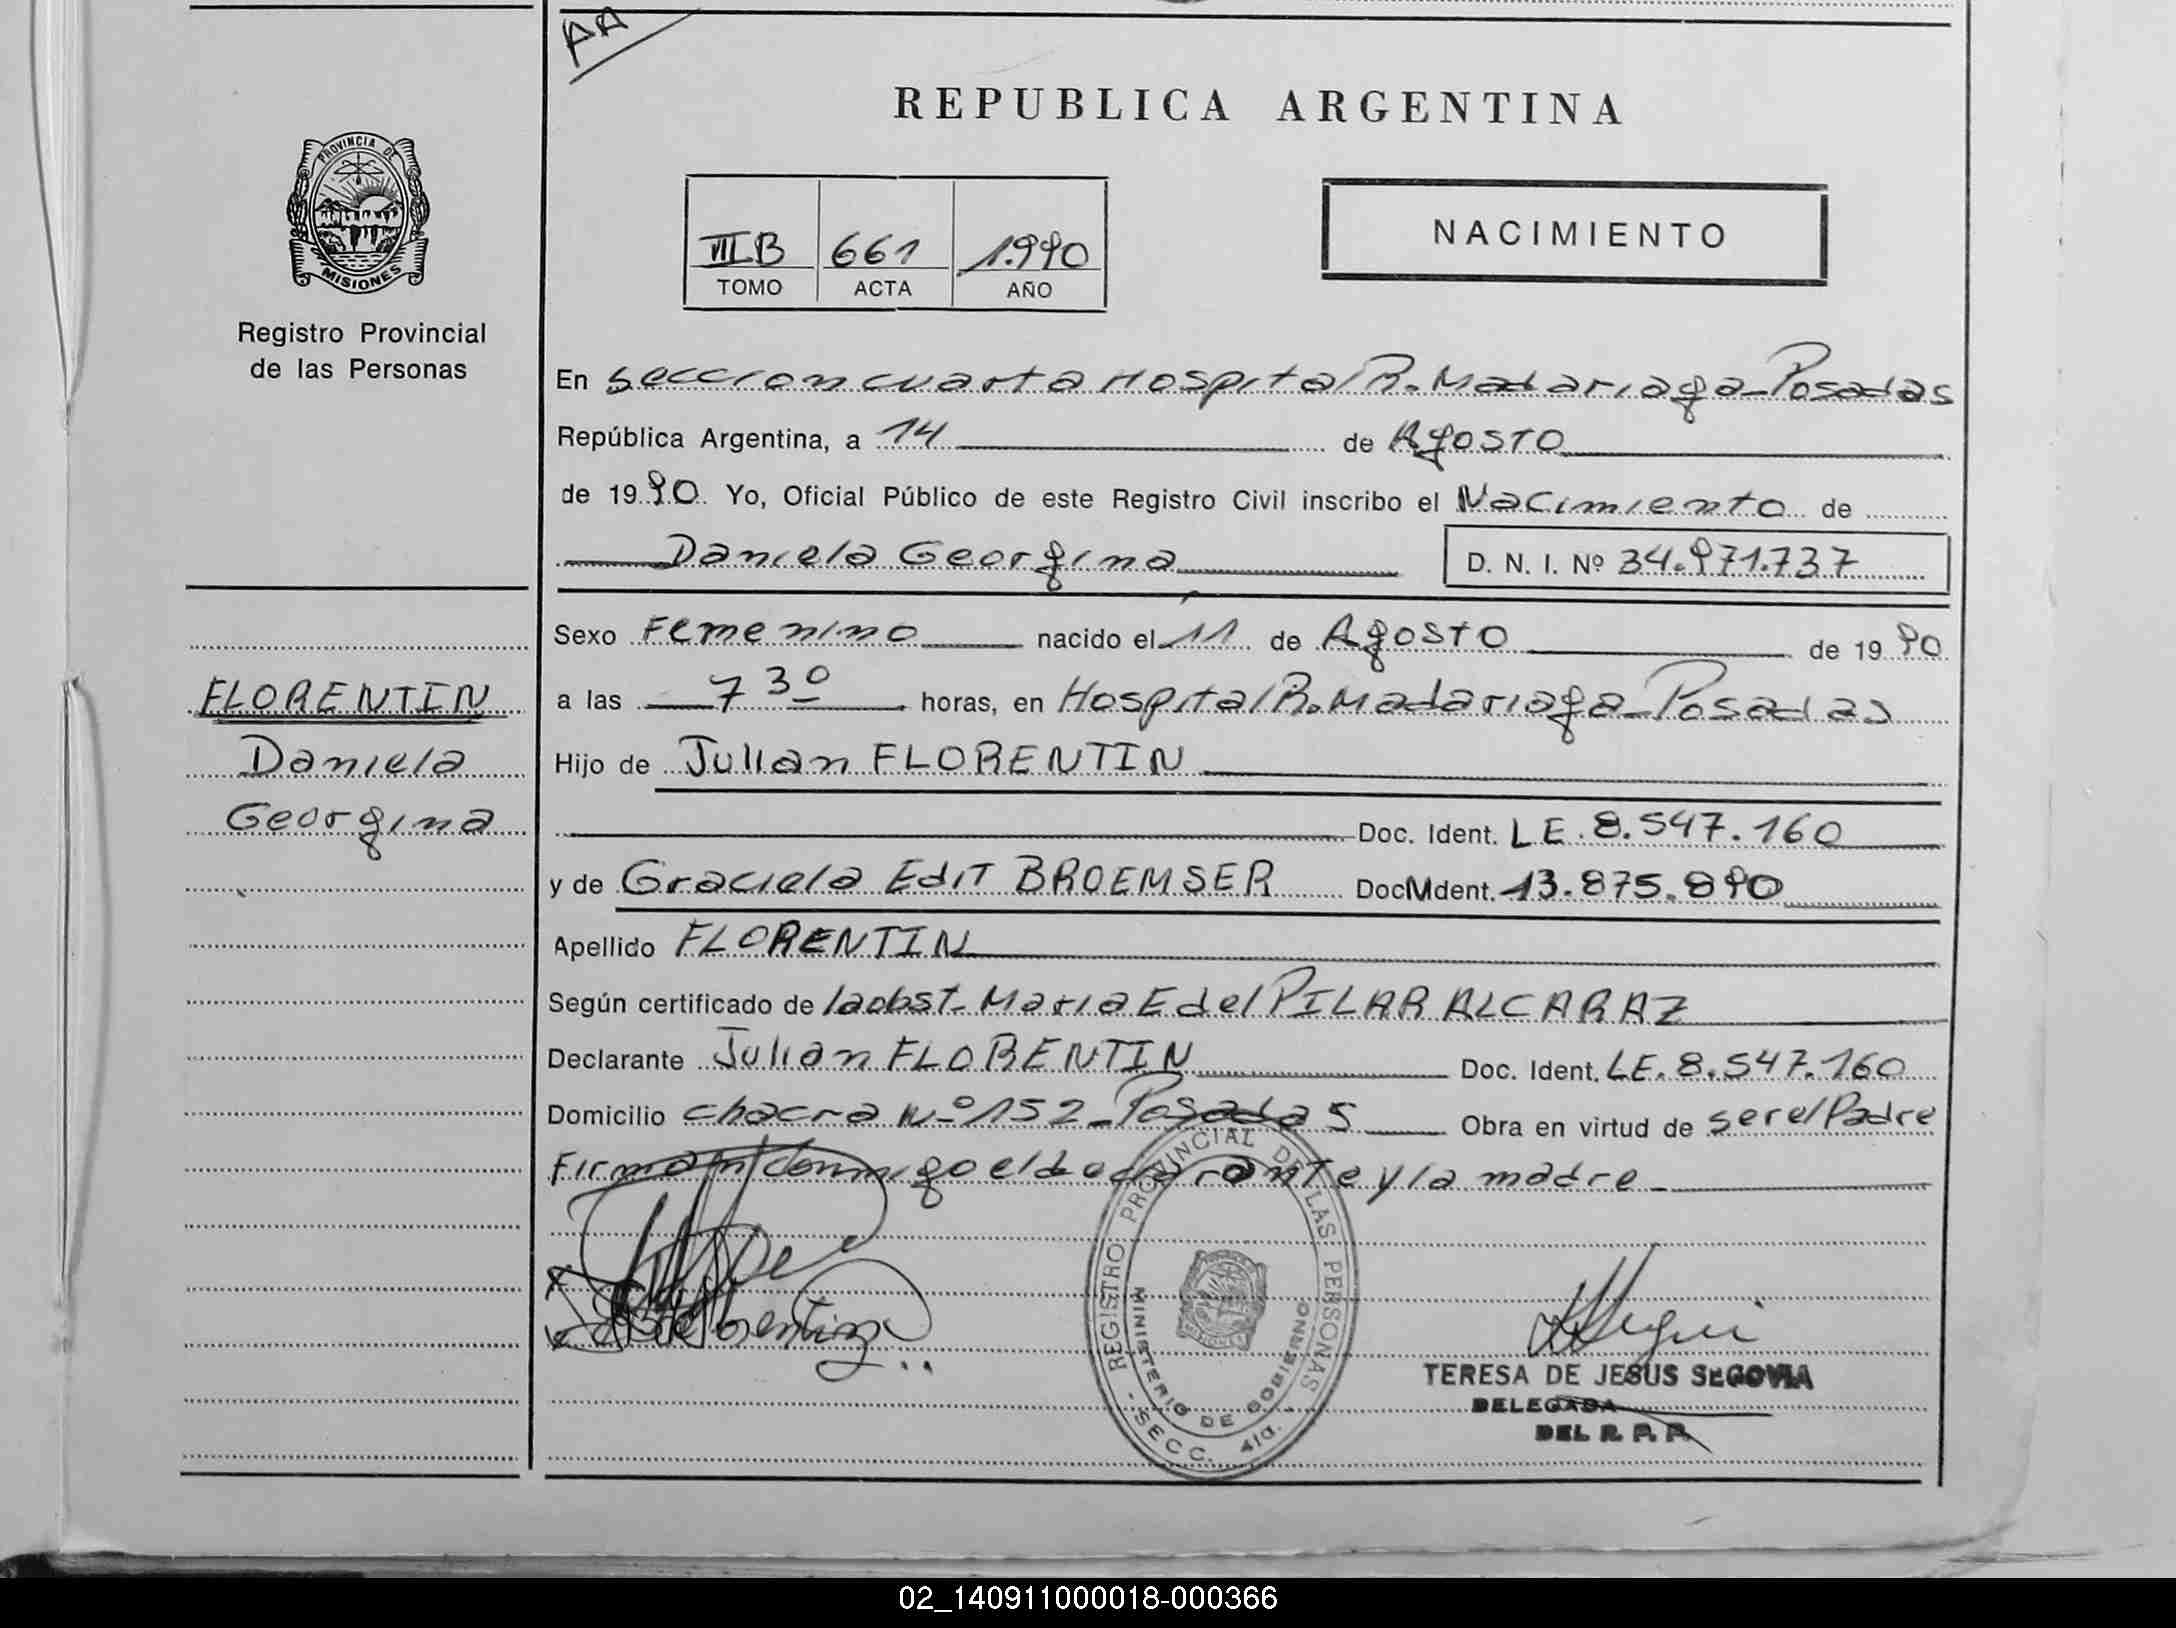 AA
REPUBLICA ARGENTINA
PROVINCIA DE
MISIONES
Registro Provincial
de las Personas
VII B 661 1.990
TOMO ACTA AÑO
NACIMIENTO
En seccion cuarta Hospital R. Madariaga - Posadas
República Argentina, a 14 de Agosto
de 1990 Yo, Oficial Público de este Registro Civil inscribo el Nacimiento de
Daniela Georgina D. N. I. Nº 34.971.737
Sexo Femenino nacido el 11 de Agosto de 1990
FLORENTIN
a las 7 30 horas, en Hospital R. Madariaga - Posadas
Daniela
Hijo de Julian FLORENTIN
Georgina
Doc. Ident. LE. 8.547.160
y de Graciela Edit BROEMSER Doc. Ident. 13.875.890
Apellido FLORENTIN
Según certificado de la obst. Maria E del PILAR ALCARAZ
Declarante Julian FLORENTIN Doc. Ident. LE. 8.547.160
Domicilio chacra Nº 152 - Posadas Obra en virtud de ser el Padre
Firman conmigo el declarante y la madre -
REGISTRO PROVINCIAL DE LAS PERSONAS
MINISTERIO DE GOBIERNO
SECC. 4ta.
TERESA DE JESUS SEGOVIA
DELEGADA
DEL R. P. P.
02_140911000018-000366